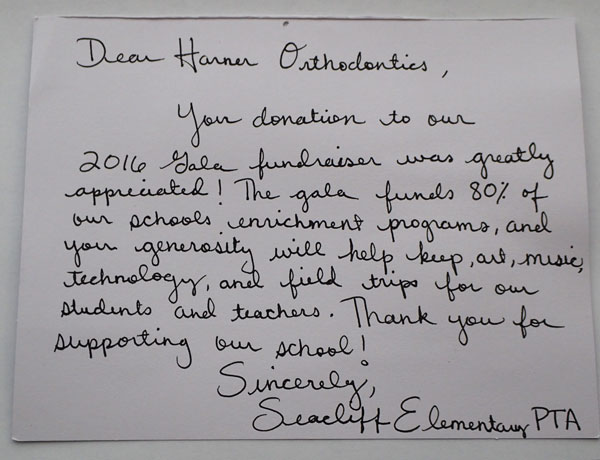 Dear Harner Orthodontics,
Your donation to our
2016 Gala fundraiser was greatly
appreciated! The gala funds 80% of
our schools enrichment programs, and
your generosity will help keep, art, music,
technology, and field trips for our
students and teachers. Thank you for
supporting our school!
Sincerely,
Seacliff Elementary PTA